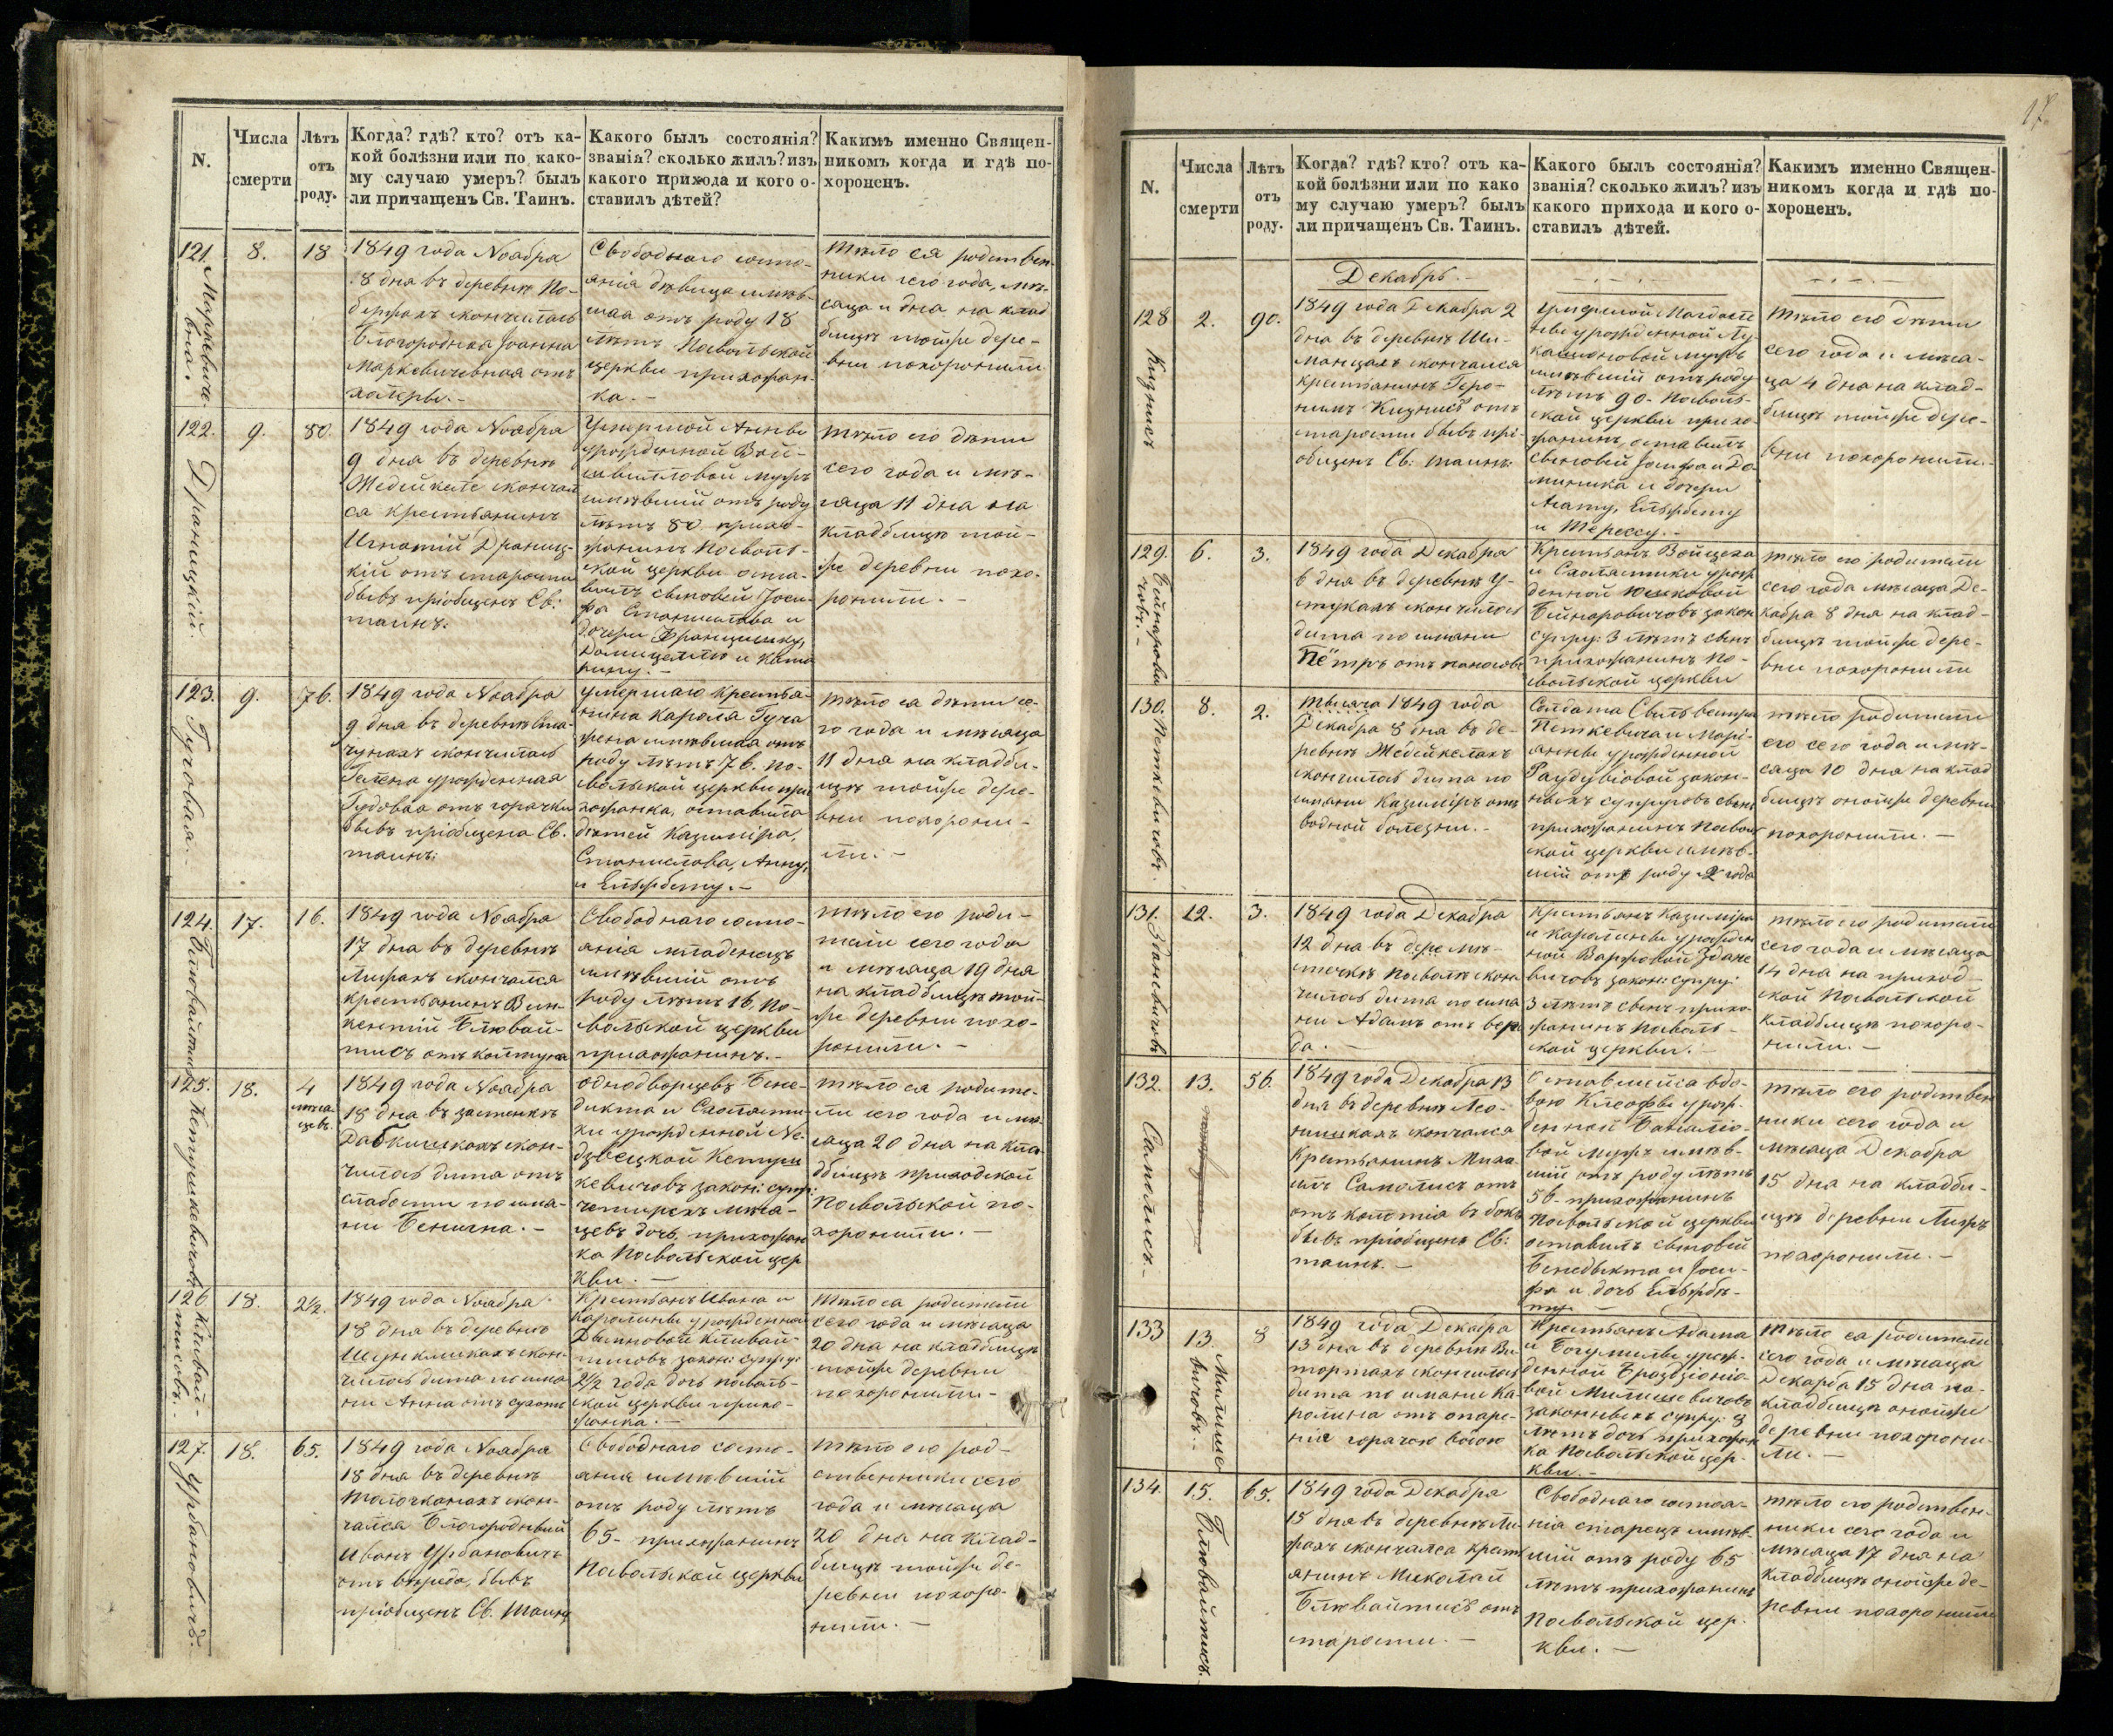 N.
Числа смерти
Лѣтъ отъ роду.
Когда? гдѣ? кто? отъ ка-
кой болѣзни или по како-
му случаю умеръ? былъ
ли причащенъ Св. Таинъ.
Какого былъ состоянія?
званія? сколько жилъ? изъ
какого прихода и кого о-
ставилъ дѣтей?
Какимъ именно Священ-
никомъ когда и гдѣ по-
хороненъ.
121.
8.
18
1849 года Ноября
8 дня въ деревнѣ По-
скончалась
Благородная Іоанна
Маркевичевная отъ
холеры. -
Свободнаго состо-
янія дѣвица имѣв-
шая отъ роду 18
лѣтъ Повольской
церкви прихожан-
ка. -
тѣло ея родствен-
ники сего года, мѣ-
сяца и дня на клад
бищѣ тойже дере-
вни похоронили
122.
Драницкій.
9.
80.
1849 года Ноября
9 дня въ деревнѣ
Медейкеле скончал
ся крестьянинъ
Игнатій Драниц-
кій отъ старости
бывъ пріобщенъ Св:
таинъ:
Умершой Анны
урожденной Вой-
мужъ
имѣвшій отъ роду
лѣтъ 80 прихо-
жанинъ Повольс-
кой церкви оста-
вилъ сыновей Іоси-
фа Станислава и
дочери Францишку,
Домицеллю и Ката
рину. -
тѣло его дѣти
сего года и мѣ-
сяца 11 дня на
кладбищѣ той-
же деревни похо-
ронили. -
123.
Гучовая.
9.
76.
1849 года Ноября
9 дня въ деревнѣ
скончалась
Гелена урожденная
Гудовая отъ горячки
бывъ пріобщена Св.
таинъ:
умершаго крестья-
нина Кароля Гуча
жена имѣвшая отъ
роду лѣтъ 76. По-
вольской церкви при
хожанка, оставила
дѣтей Казимира,
Станислава, Анну,
и Ельжбету. -
тѣло ея дѣти се-
го года и мѣсяца
11 дня на кладби-
щѣ тойже дере-
вни похорони-
ли. -
124.
17.
16.
1849 года Ноября
17 дня въ деревнѣ
Лижахъ скончался
крестьянинъ Вин-
кентій Блювай-
тисъ отъ колтуна
Свободнаго состо-
янія младенецъ
имѣвшій отъ
роду лѣтъ 16, По-
вольской церкви
прихожанинъ. -
тѣло его роди-
тели сего года
и мѣсяца 19 дня
на кладбищѣ той-
же деревни похо-
ронили. -
125.
18.
4
мѣся-
цевъ.
1849 года Ноября
18 дня въ застенкѣ
скон-
чилась дитя отъ
слабости по име-
ни Бенигна. -
однодворцевъ Бене-
дикта и Схоласти-
ки урожденной Не-
дзвецкой Кетрус
кевичовъ закон: супр:
четырехъ мѣся-
цевъ дочь, прихожан
ка Повольской цер
кви. -
тѣло ея родите-
ли сего года и мѣ-
сяца 20 дня на кла
дбищѣ приходской
Повольской по-
хоронили. -
126.
18.
2½.
1849 года Ноября
18 дня въ деревнѣ
скон-
чилась дитя по име
ни Анна отъ сухоты
Крестьянъ Ивана и
Каролины урожденной
закон: супру:
2½ года дочь Поволь-
ской церкви прихо-
жанка. -
тѣло ея родители
сего года и мѣсяца
20 дня на кладбищѣ
тойже деревни
похоронили -
127.
Урбановичъ.
18.
65.
1849 года Ноября
18 дня въ деревнѣ
скон-
чался Благородный
Иванъ Урбановичъ
отъ вереда, бывъ
пріобщенъ Св. Таинъ
Свободнаго состо-
янія имѣвшій
отъ роду лѣтъ
65 - прихожанинъ
Повольской церкви
тѣло его род-
ственники сего
года и мѣсяца
20 дня на клад-
бищѣ тойже де-
ревни похоро-
нили. -
17.
N.
Числа смерти
Лѣтъ отъ роду.
Когда? гдѣ? кто? отъ ка-
кой болѣзни или по како
му случаю умеръ? былъ
ли причащенъ Св. Таинъ.
Какого былъ состоянія?
званія? сколько жилъ? изъ
какого прихода и кого о-
ставилъ дѣтей.
Какимъ именно Священ-
никомъ когда и гдѣ по-
хороненъ.
Декабрь. -
128
2.
90.
1849 года Декабря 2
дня въ деревнѣ Ши-
скончался
крестьянинъ Геро-
нимъ отъ
старости бывъ прі-
общенъ Св: таинъ:
Умершой Магдале
ны урожденной Лу-
мужъ
имѣвшій отъ роду
лѣтъ 90 - Повольс-
кой церкви прихо-
жанинъ, оставилъ
сыновей Іосифа и До
миника и дочери
Агату, Ельжбету
и Терессу. -
тѣло его дѣти
сего года и мѣся-
ца 4 дня на клад-
бищѣ тойже дере-
вни похоронили. -
129.
6.
3.
1849 года Декабря
6 дня въ деревнѣ У-
скончилась
дитя по имени
Пётръ отъ
Крестьянъ Войцеха
и Схоластики урож
денной Юшковой
Бейнаровичовъ закон
супру: 3 лѣтъ сынъ
прихожанинъ По-
вольской церкви
тѣло его родители
сего года мѣсяца Де-
кабря 8 дня на клад-
бищѣ тойже дере-
вни похоронили
130.
Петкевичовъ.
8.
2.
Тысяча 1849 года
Декабря 8 дня въ де-
ревнѣ Медейкеляхъ
скончилась дитя по
имени Казиміръ отъ
водной болезни. -
Солдата Сильвестра
Петкевича и Марі-
анны урожденной
закон-
ныхъ супруговъ сынъ
прихожанинъ Поволь
ской церкви имѣв-
шій отъ роду 2 года
тѣло родители
его сего года и мѣ-
сяца 10 дня на клад
бищѣ онойже деревни
похоронили. -
131.
Здановичовъ
12.
3.
1849 года Декабря
12 дня въ мѣ-
стечкѣ Поволѣ скон
чилась дитя по име
ни Адамъ отъ вере
да. -
Крестьянъ Казиміра
и Каролины урожден
ной Здано
вичовъ закон: супру:
3 лѣтъ сынъ прихо-
жанинъ Поволь-
ской церкви. -
тѣло его родители
сего года и мѣсяца
14 дня на приход-
ской Повольской
кладбищѣ похоро-
нили. -
132.
Самолисъ. -
13.
56.
1849 года Декабря 13
дня въ деревнѣ Лео-
скончался
Крестьянинъ Миха
илъ Самолисъ отъ
отъ колотія въ бокъ
бывъ пріобщенъ Св:
таинъ. -
Оставшейся вдо-
вою Клеофы урож-
денной
вой мужъ имѣв-
шій отъ роду лѣтъ
56 - прихожанинъ
Повольской церкви
оставилъ сыновей
Бенедыкта и Іоси-
фа и дочь Ельжбе-
ту. -
тѣло его родствен
ники сего года и
мѣсяца Декабря
15 дня на кладби-
щѣ деревни Лижъ
похоронили. -
133
13.
8
1849 года Декабря
13 дня въ деревнѣ
скончилась
дитя по имени Ка-
ролина отъ опаре-
нія горячою водою
Крестьянъ Адама
и Богумилы урож-
денной
законныхъ супру: 8
лѣтъ дочь прихожан
ка Повольской цер-
кви. -
тѣло ея родители
сего года и мѣсяца
Декарба 15 дня на
кладбищѣ онойже
деревни похорони-
ли. -
134.
Блювайтисъ. -
15.
65.
1849 года Декабря
15 дня въ деревнѣ Ли-
жахъ скончался крест
янинъ Миколай
Блювайтисъ отъ
старости. -
Свободнаго состоя-
нія старецъ имѣв-
шій отъ роду 65
лѣтъ прихожанинъ
Повольской цер-
кви. -
тѣло его родствен-
ники сего года и
мѣсяца 17 дня на
кладбищѣ онойже де-
ревни похоронили